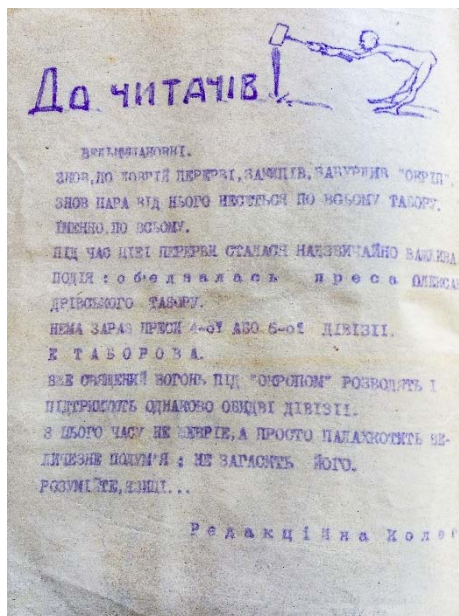 До читачів!
ВЕЛЬМИШАНОВНІ.
ЗНОВ, ПО ДОВГІЙ ПЕРЕРВІ, ЗАКИПІВ, ЗАБУРЛИВ "ОКРІП".
ЗНОВ ПАРА ВІД НЬОГО НЕСЕТЬСЯ ПО ВСЬОМУ ТАБОРУ.
ІМЕННО, ПО ВСЬОМУ.
ПІД ЧАС ЦІЄЇ ПЕРЕРВИ СТАЛАСЯ НАДЗВИЧАЙНО ВАЖЛИВА
ПОДІЯ: о б е д н а л а с ь п р е с а ОЛЕКСАН
ДРІВСЬКОГО ТАБОРУ.
НЕМА ЗАРАЗ ПРЕСИ 4-ої АБО 6-ої ДІВІЗІЇ.
Е Т А Б О Р О В А.
ВЖЕ СВЯЩЕНИЙ ВОГОНЬ ПІД "ОКРОПОМ" РОЗВОДЯТЬ І
ПІДТРИМУЮТЬ ОДНАКОВО ОБИДВІ ДІВІЗІЇ.
З ЦЬОГО ЧАСУ НЕ ЖЕВРІЄ, А ПРОСТО ПАЛАХКОТИТЬ ВЕ-
ЛИЧЕЗНЕ ПОЛУМ'Я: НЕ ЗАГАСИТЬ ЙОГО.
РОЗУМІЙТЕ, ЯЗИЦІ...
Р е д а к ц і й н а К о л е г